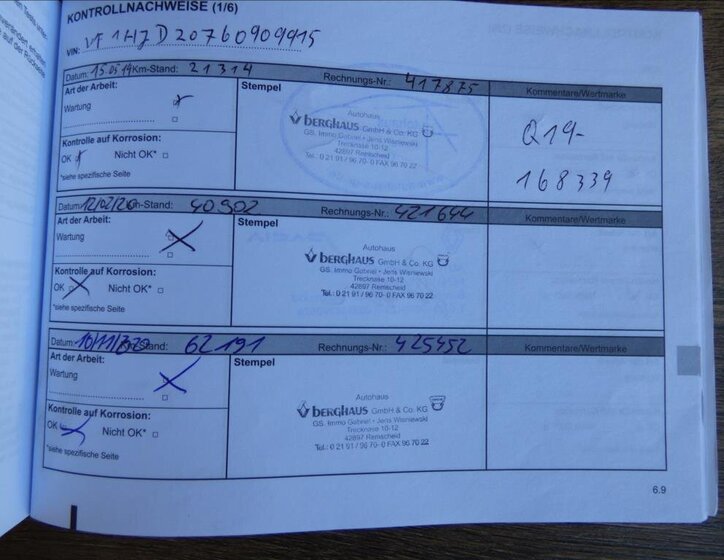 KONTROLLNACHWEISE (1/6)
VIN: VF1HJD20760909915
Datum: 15.05.19 Km-Stand: 21314 Rechnungs-Nr.: 417875 Kommentare/Wertmarke
Art der Arbeit:
Wartung
Kontrolle auf Korrosion:
OK Nicht OK*
*siehe spezifische Seite
Stempel
Autohaus
BERGHAUS GmbH & Co. KG
GS. Immo Gabriel • Jens Wisniewski
Trecknase 10-12
42897 Remscheid
Tel.: 0 21 91 / 96 70-0 FAX 96 70 22
Q19-
168339
Datum: 12/02/20 Km-Stand: 40902 Rechnungs-Nr.: 421644 Kommentare/Wertmarke
Art der Arbeit:
Wartung
Kontrolle auf Korrosion:
OK Nicht OK*
*siehe spezifische Seite
Stempel
Autohaus
BERGHAUS GmbH & Co. KG
GS. Immo Gabriel • Jens Wisniewski
Trecknase 10-12
42897 Remscheid
Tel.: 0 21 91 / 96 70-0 FAX 96 70 22
Datum: 10/11/220 Km-Stand: 62191 Rechnungs-Nr.: 425452 Kommentare/Wertmarke
Art der Arbeit:
Wartung
Kontrolle auf Korrosion:
OK Nicht OK*
*siehe spezifische Seite
Stempel
Autohaus
BERGHAUS GmbH & Co. KG
GS. Immo Gabriel • Jens Wisniewski
Trecknase 10-12
42897 Remscheid
Tel.: 0 21 91 / 96 70-0 FAX 96 70 22
6.9